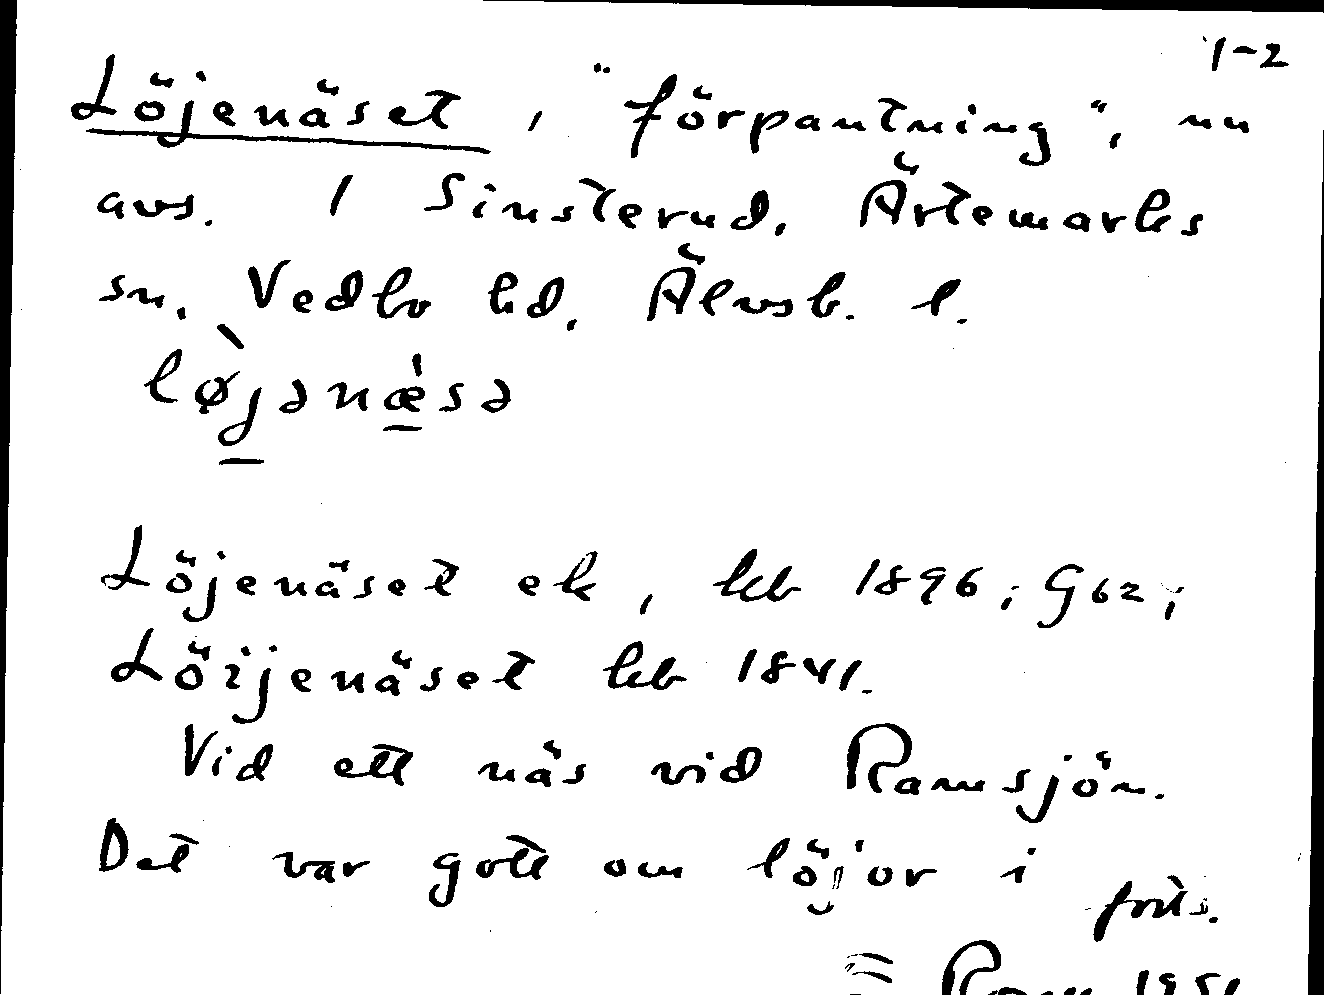 1-2
Löjenäset, "förpantning", nu
avs. / Sinsterud, Ärtemarks
sn, Vedbo hd, Älvsb. l.
lø̀jənæ̀sə
Löjenäset ek, kb 1896; G62;
Löijenäset kb 1841.
Vid ett näs vid Ramsjön.
Det var gott om löjor i
forts.